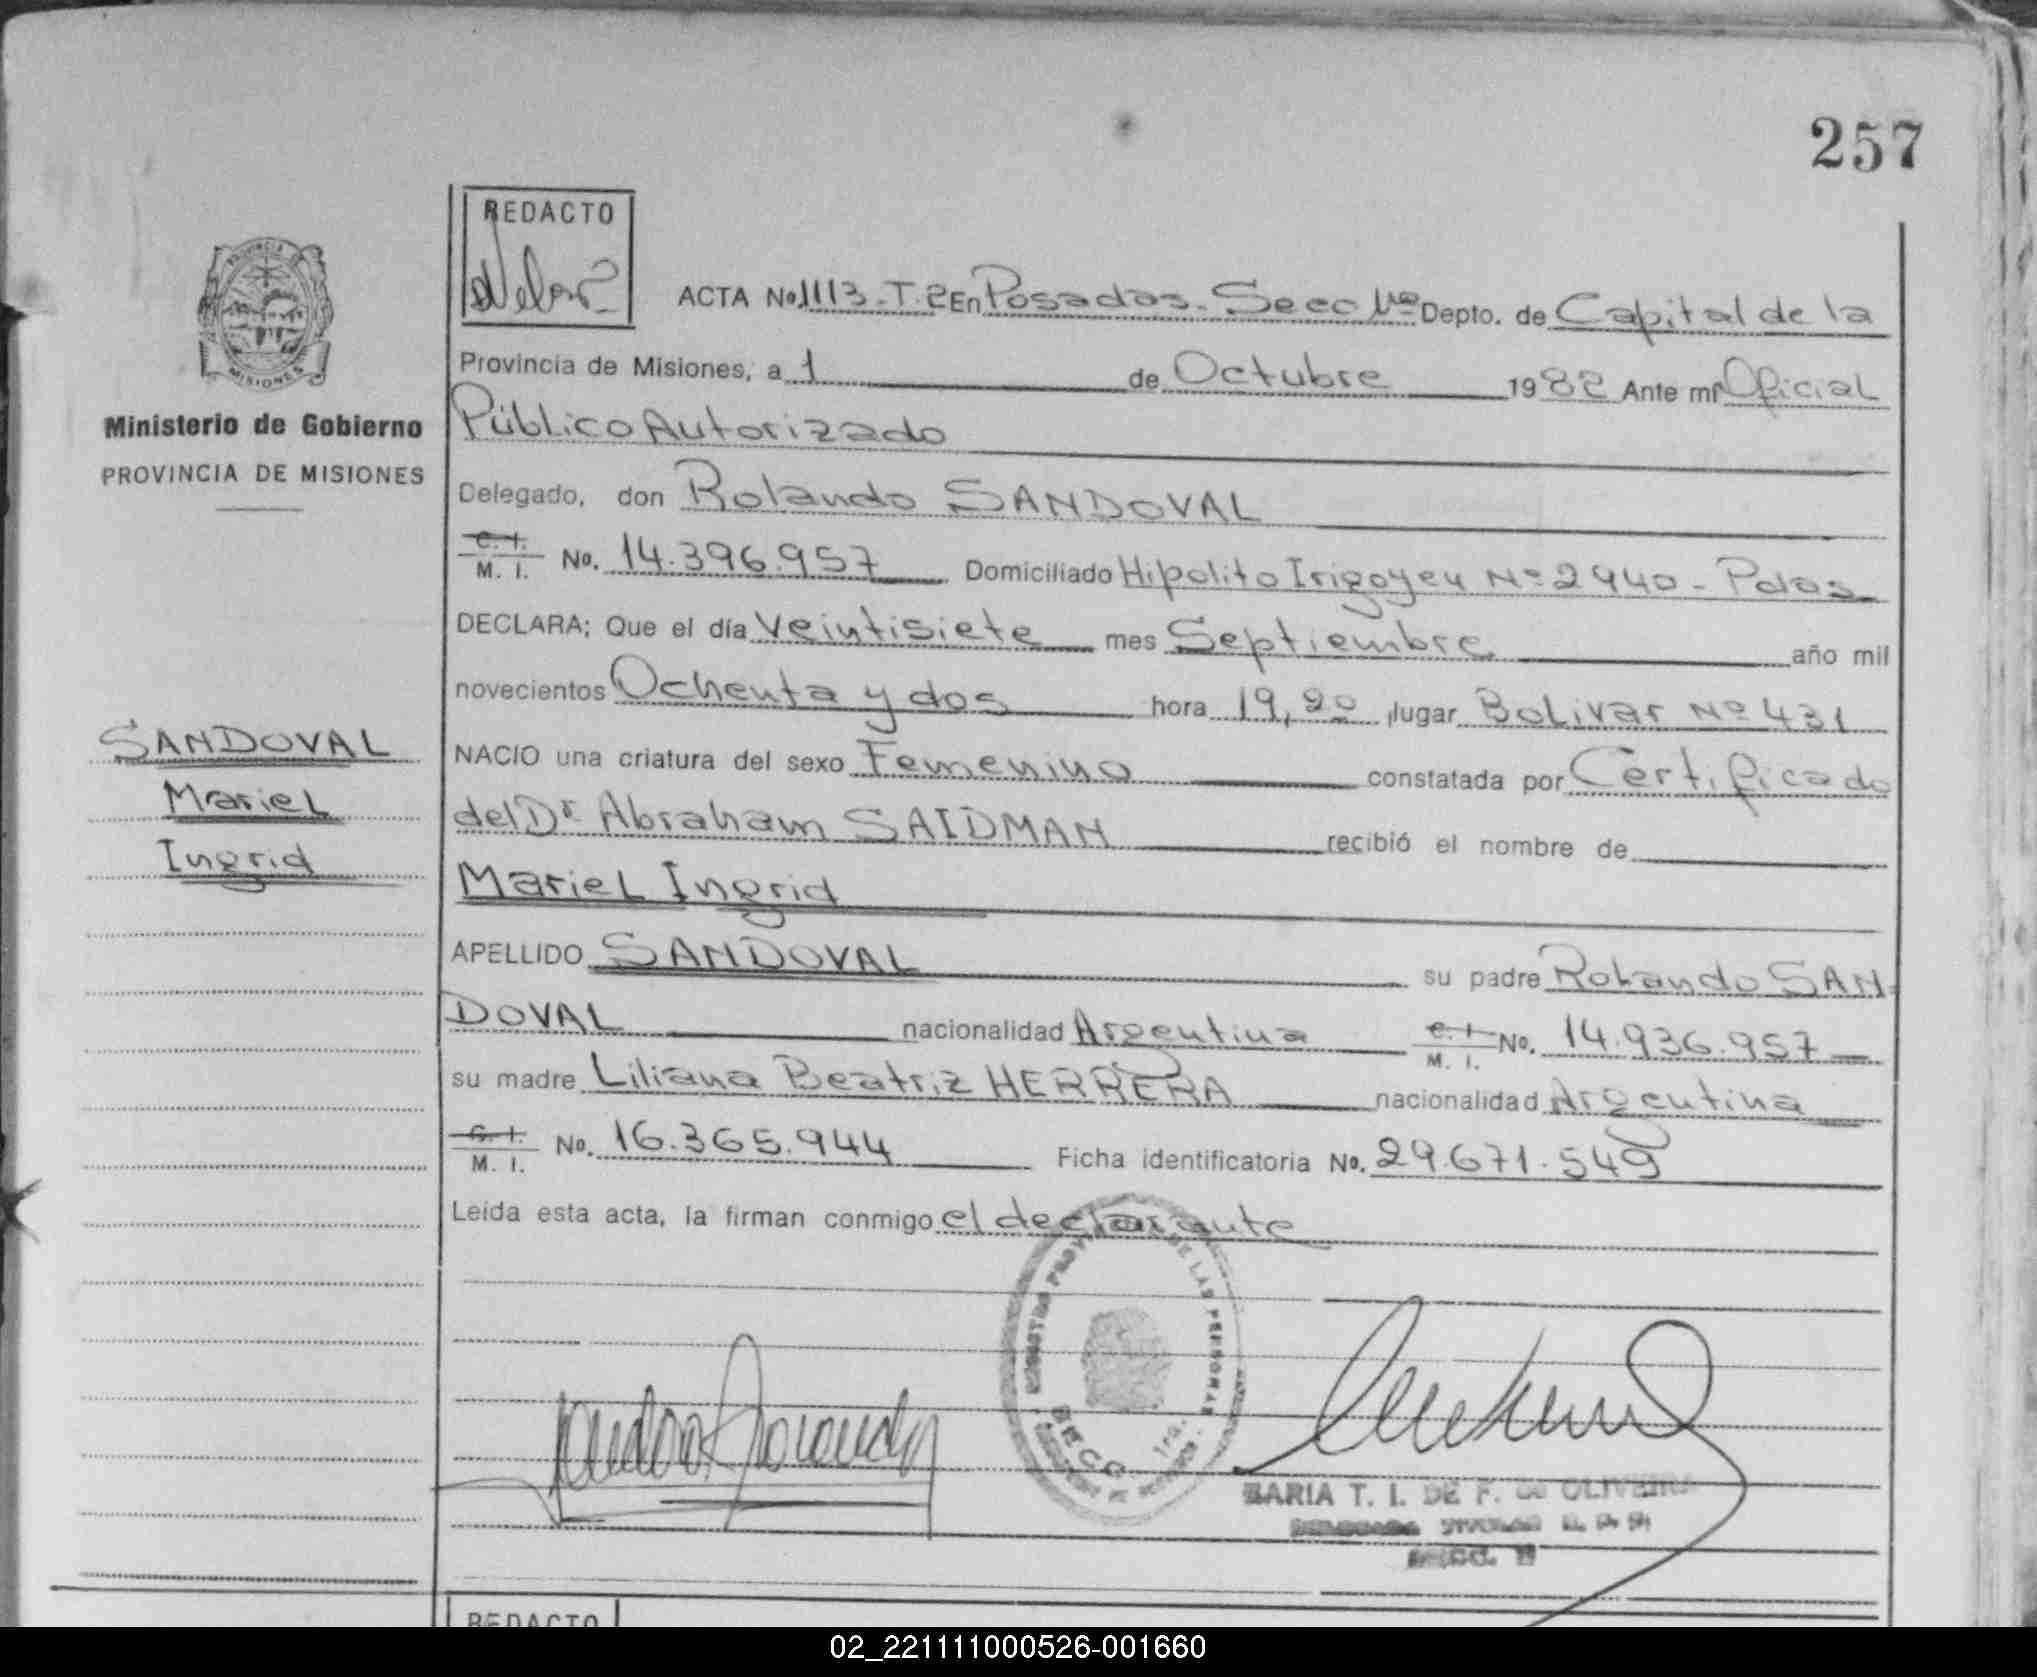 257
REDACTO
ACTA No. 1113-T.2 En Posadas - Secc 1ra Depto. de Capital de la
Provincia de Misiones, a 1 de Octubre 1982 Ante mi Oficial
Ministerio de Gobierno
PROVINCIA DE MISIONES
Público Autorizado
Delegado, don Rolando SANDOVAL
C. I.
M. I. No. 14.396.957 Domiciliado Hipolito Irigoyen Nº 2940 - Pdas
DECLARA; Que el día Veintisiete mes Septiembre año mil
novecientos Ochenta y dos hora 19,20 ,lugar Bolivar Nº 431
SANDOVAL
Mariel
Ingrid
NACIO una criatura del sexo Femenino constatada por Certificado
del Dr Abraham SAIDMAN recibió el nombre de
Mariel Ingrid
APELLIDO SANDOVAL su padre Rolando SAN-
DOVAL nacionalidad Argentina C. I.
M. I. No. 14.936.957
su madre Liliana Beatriz HERRERA nacionalidad Argentina
C. I.
M. I. No. 16.365.944 Ficha identificatoria No. 29.671.549
Leída esta acta, la firman conmigo el declarante
DE LAS PERSONAS
SECC 1ra.
MARIA T. I. DE F. DE OLIVEIRA
REDACTO
02_221111000526-001660